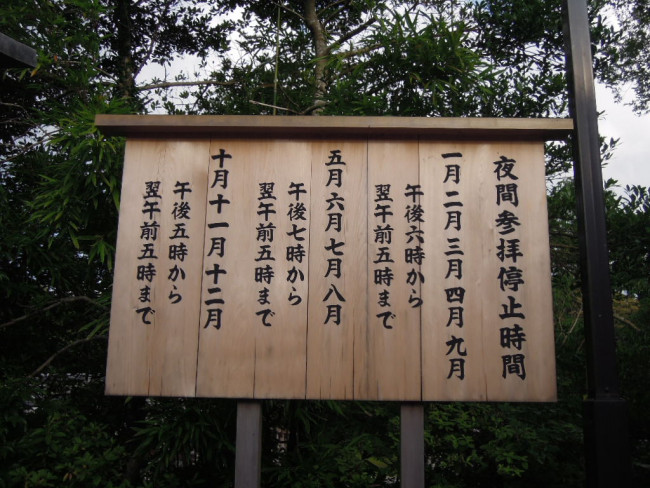 夜間参拝停止時間
一月二月三月四月九月
午後六時から
翌午前五時まで
五月六月七月八月
午後七時から
翌午前五時まで
十月十一月十二月
午後五時から
翌午前五時まで